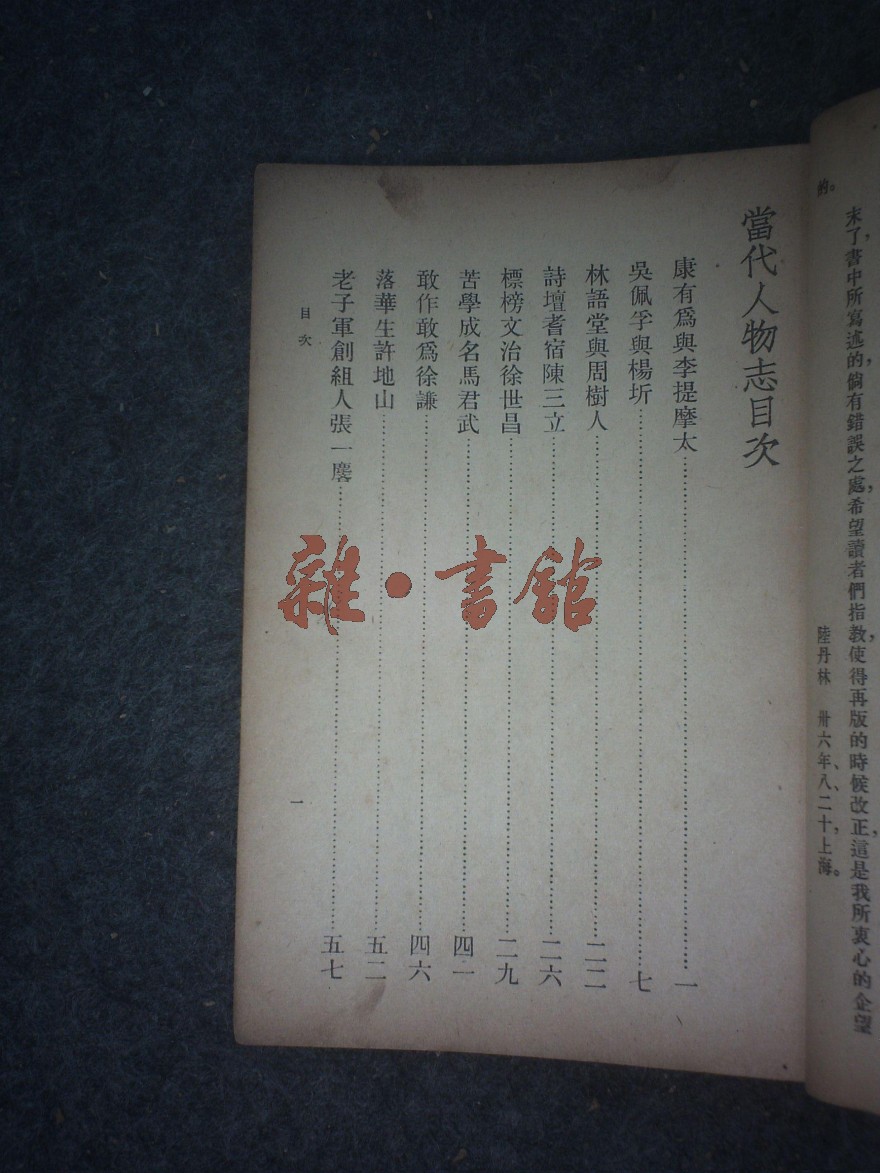 的。
末了，書中所寫述的，倘有錯誤之處，希望讀者們指教，使得再版的時候改正，這是我所衷心的企望
陸丹林　卅六年、八、二十，上海。
當代人物志目次
康有爲與李提摩太……一
吳佩孚與楊圻……七
林語堂與周樹人……二二
詩壇耆宿陳三立……二六
標榜文治徐世昌……二九
苦學成名馬君武……四一
敢作敢爲徐謙……四六
落華生許地山……五二
老子軍創組人張一麐……五七
目次
一
雜·書館